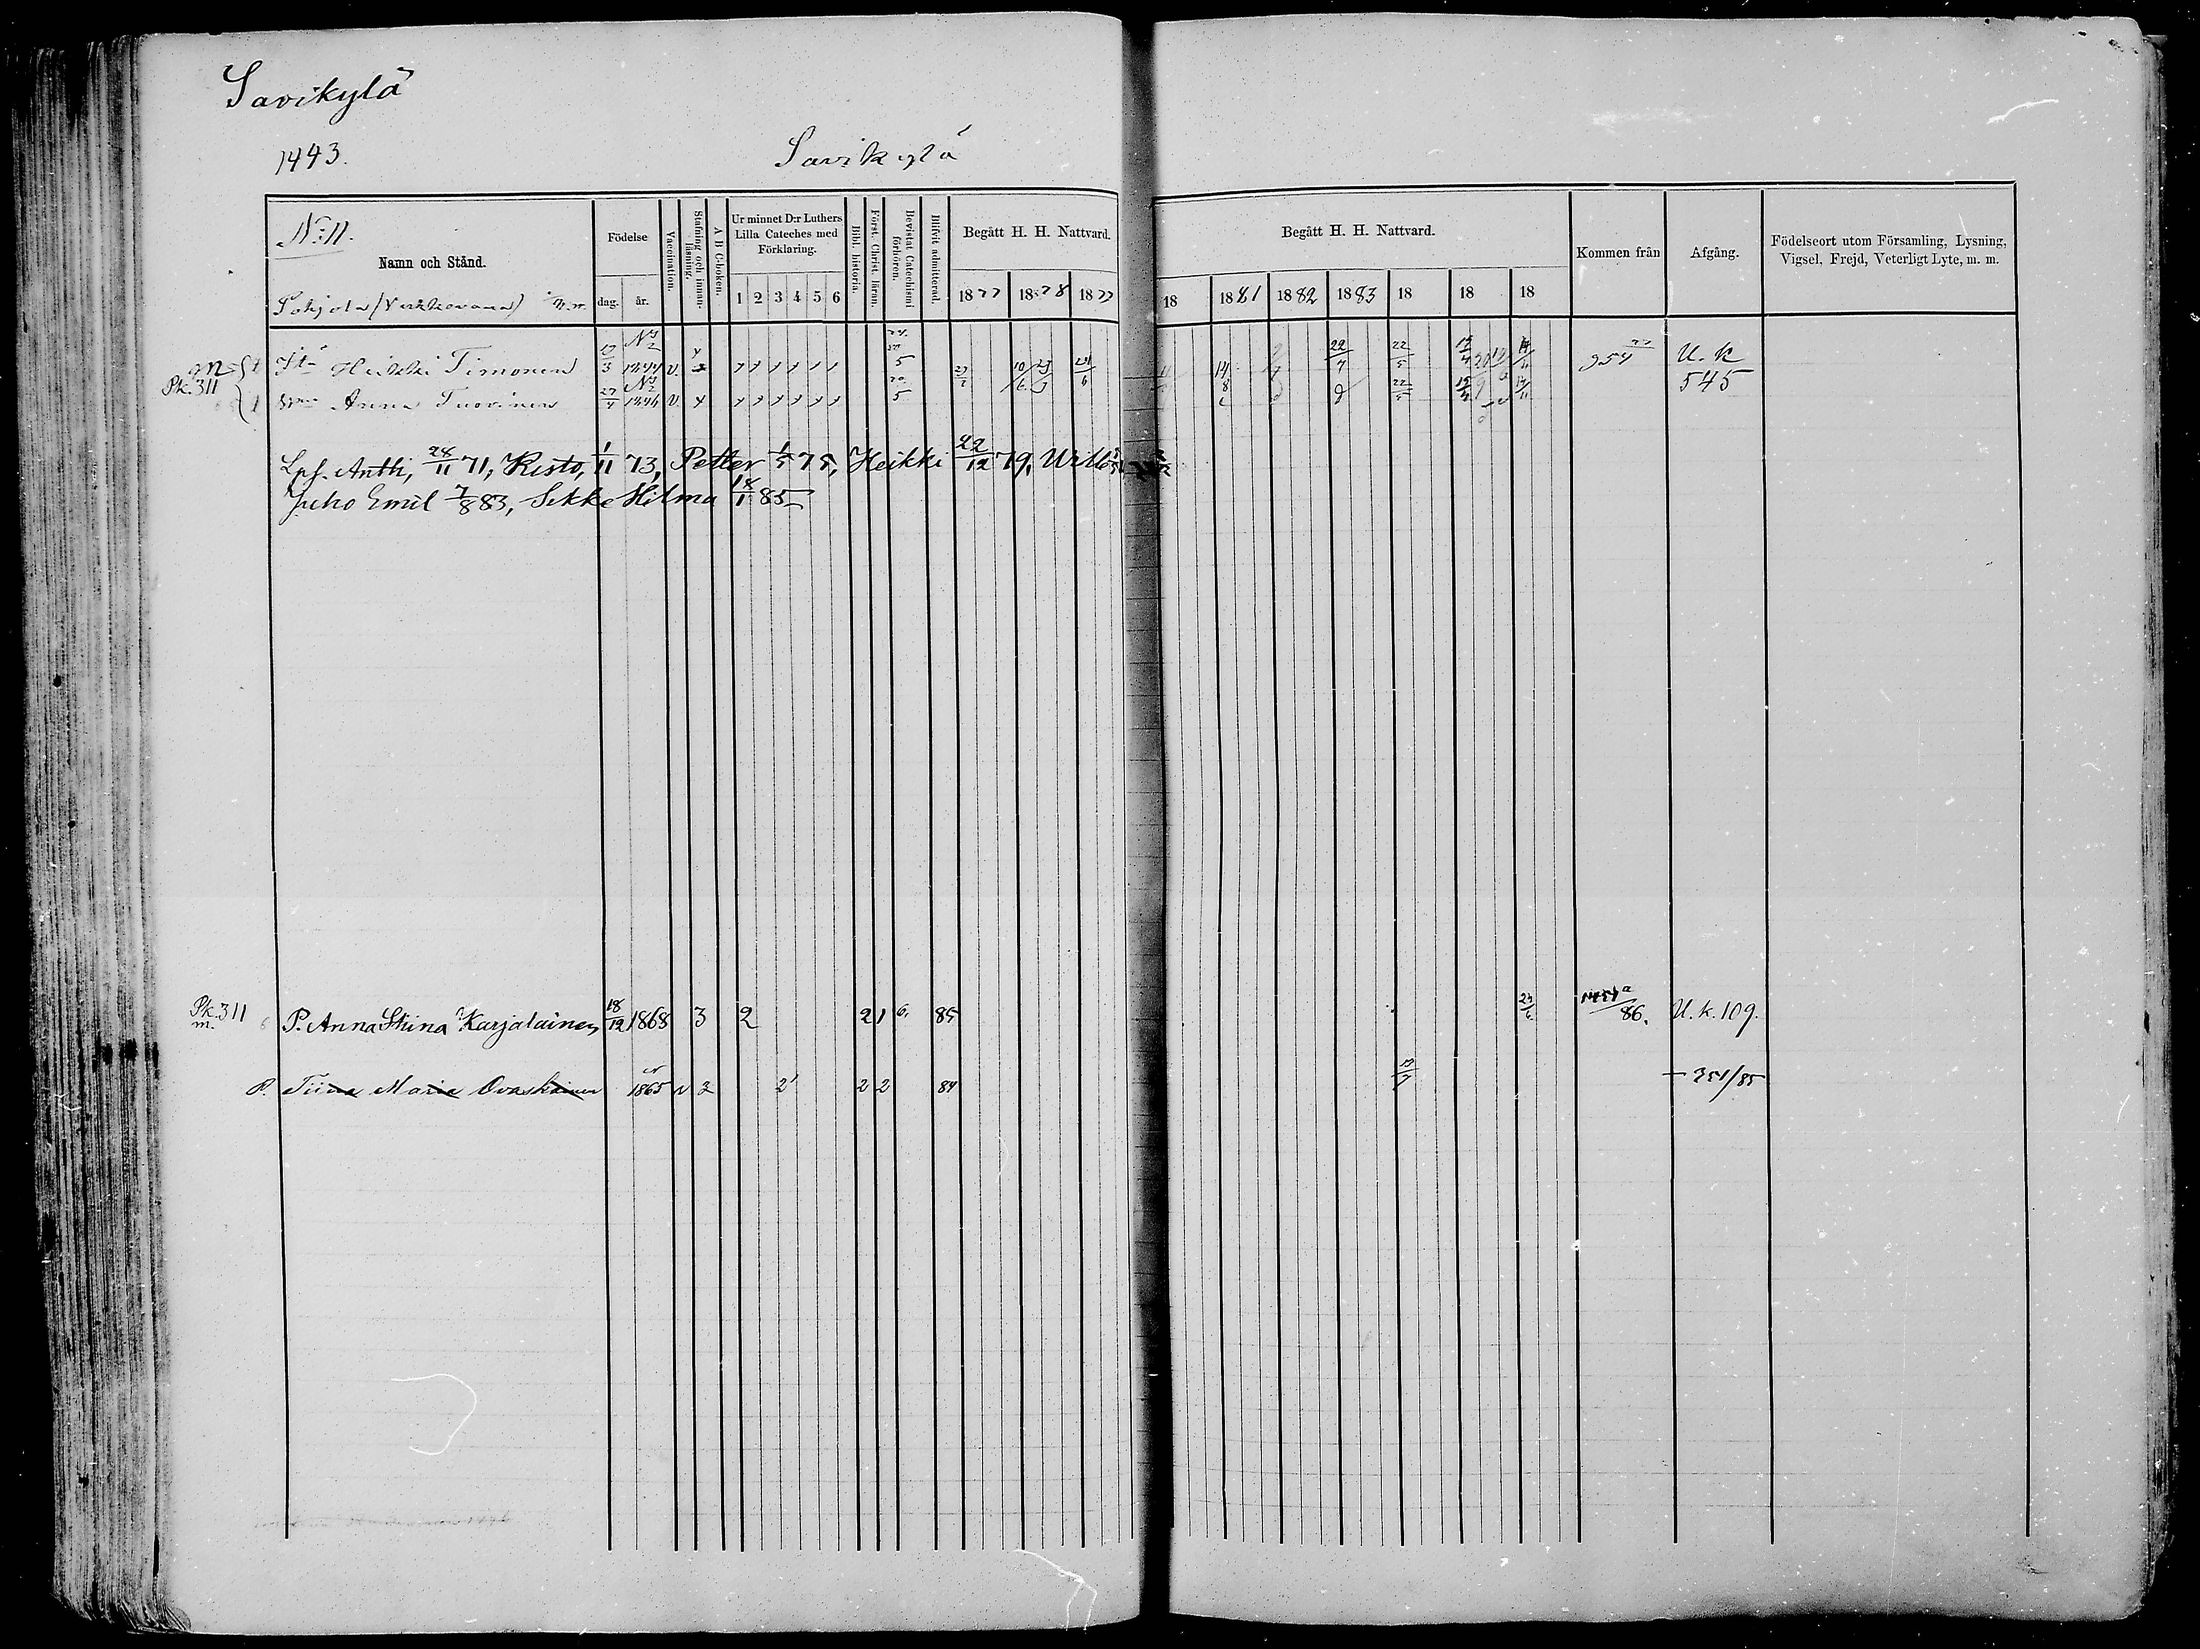 Savikylä
1443.
Savikylä
N:o 11.
Namn och Stånd.
Födelse
dag. år.
Vaccination.
Stafning och innan-läsning.
A B C-boken.
Ur minnet D:r Luthers Lilla Cateches med Förklaring.
1 2 3 4 5 6
Bibl. historia.
Först. Christ. läran.
Bevistat Catechismi förhören.
Blifvit admitterad.
Begått H. H. Nattvard.
1877 1878 1879
Begått H. H. Nattvard.
18 1881 1882 1883 18 18 18
Kommen från
Afgång.
Födelseort utom Församling, Lysning, Vigsel, Frejd, Veterligt Lyte, m. m.
Pohjola
m Heikki Timonen 17/3 1844 v. 22/4 22/5 954 U. k
Pk. 311 545
Anna Tuovinen 27/4 1846 v. 4
Lpf. Antti, 28/11 71, Risto, 1/11 73, Petter 1/5 75, Heikki 22/12 79,
Juho Emil 7/8 83, Sikke Hilma 18/1 85
Pk. 311 P. Anna Stina Karjalainen 18/12 1868 3 2 2 1 6. 85 24/6 1451a/86. U. k. 109.
m.
P. Tiina Maria Ovaskainen 1865 v 3 2 2 2 84 351/85